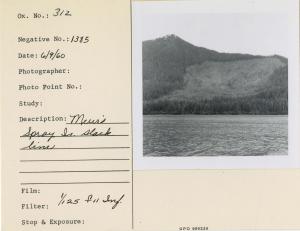 Ox. No.: 312
Negative No.: 1385
Date: 6/9/60
Photographer:
Photo Point No.:
Study:
Description:
Spray Is. slack
line
Film:
Filter: 1/125 f11 Inf.
Stop & Exposure:
GPO